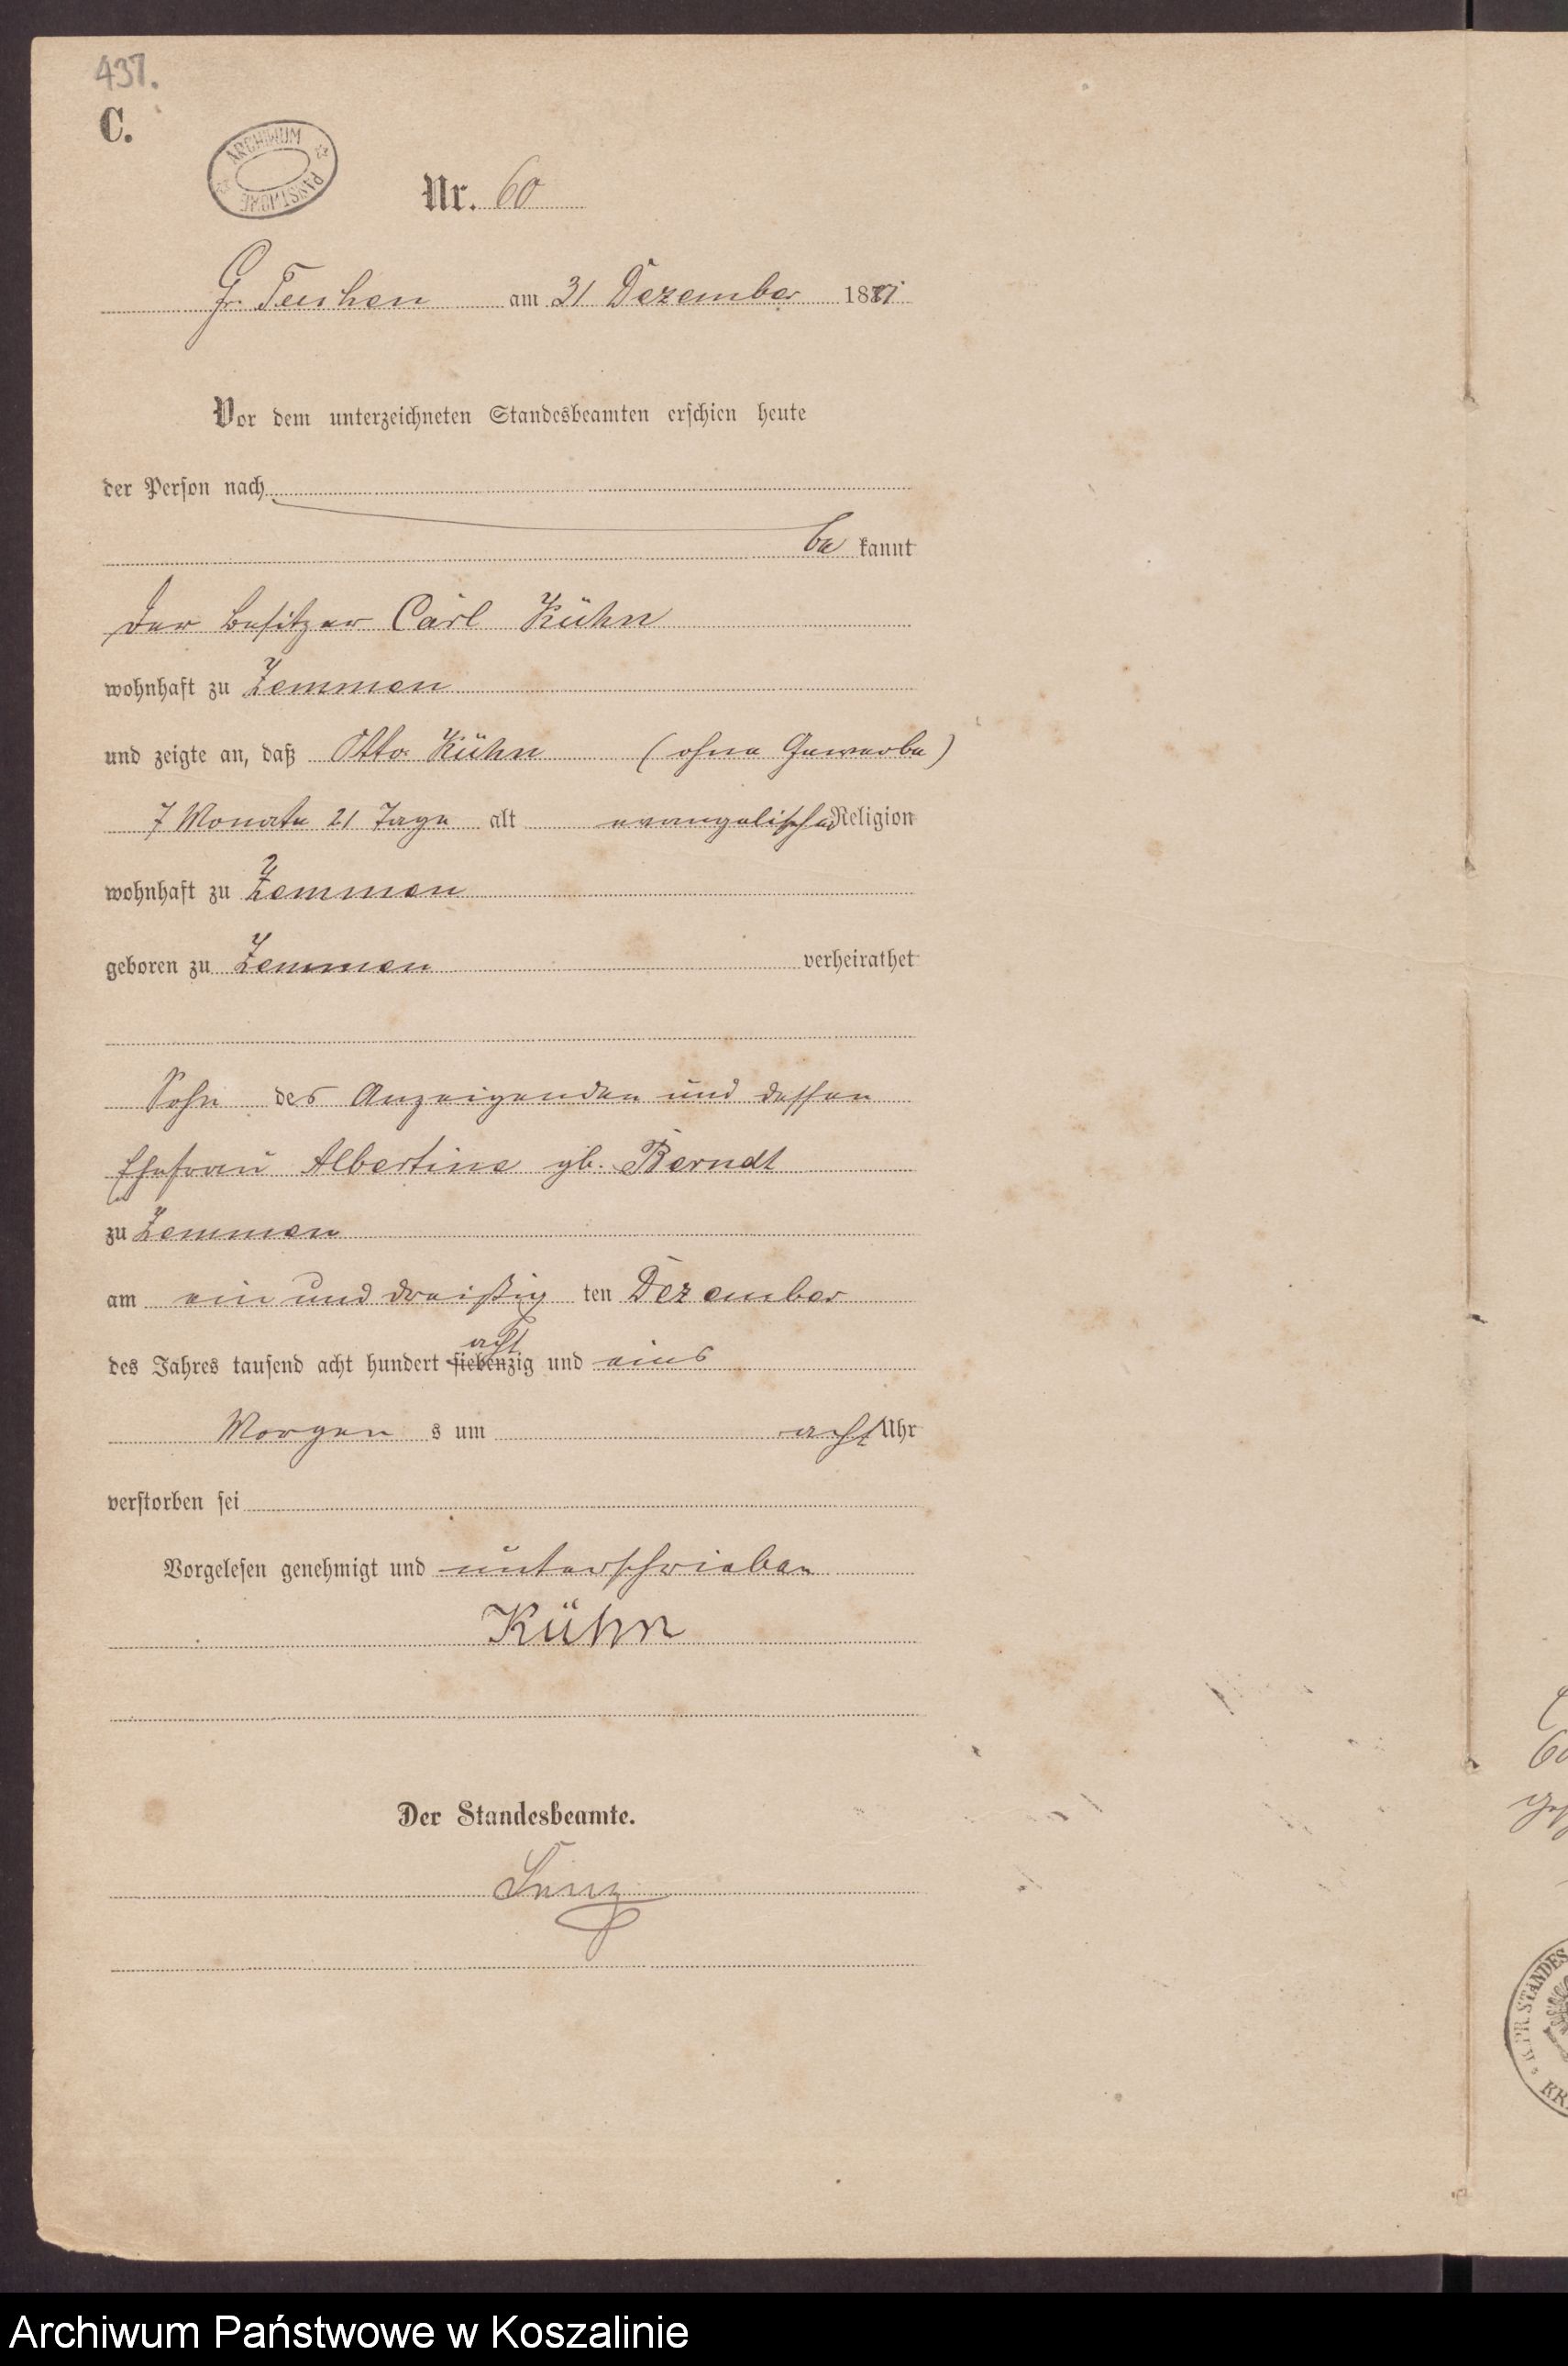 437.
C.
ARCHIWUM PAŃSTWOWE
Nr. 60
Gr. Tuchen am 31 Dezember 1881
Vor dem unterzeichneten Standesbeamten erschien heute
der Person nach
be kannt
der Besitzer Carl Kühn
wohnhaft zu Zemmen
und zeigte an, daß Otto Kühn (ohne Gewerbe)
7 Monate 21 Tage alt evangelischer Religion
wohnhaft zu Zemmen
geboren zu Zemmen verheirathet
Sohn des Anzeigenden und dessen
Ehefrau Albertine gb. Berndt
zu Zemmen
am ein und dreißig ten Dezember
des Jahres tausend acht hundert siebenzig acht und eins
Morgen s um acht Uhr
verstorben sei
Vorgelesen genehmigt und unterschrieben
Kühn
Der Standesbeamte.
Lenz
K. PR. STANDES
KR
Archiwum Państwowe w Koszalinie